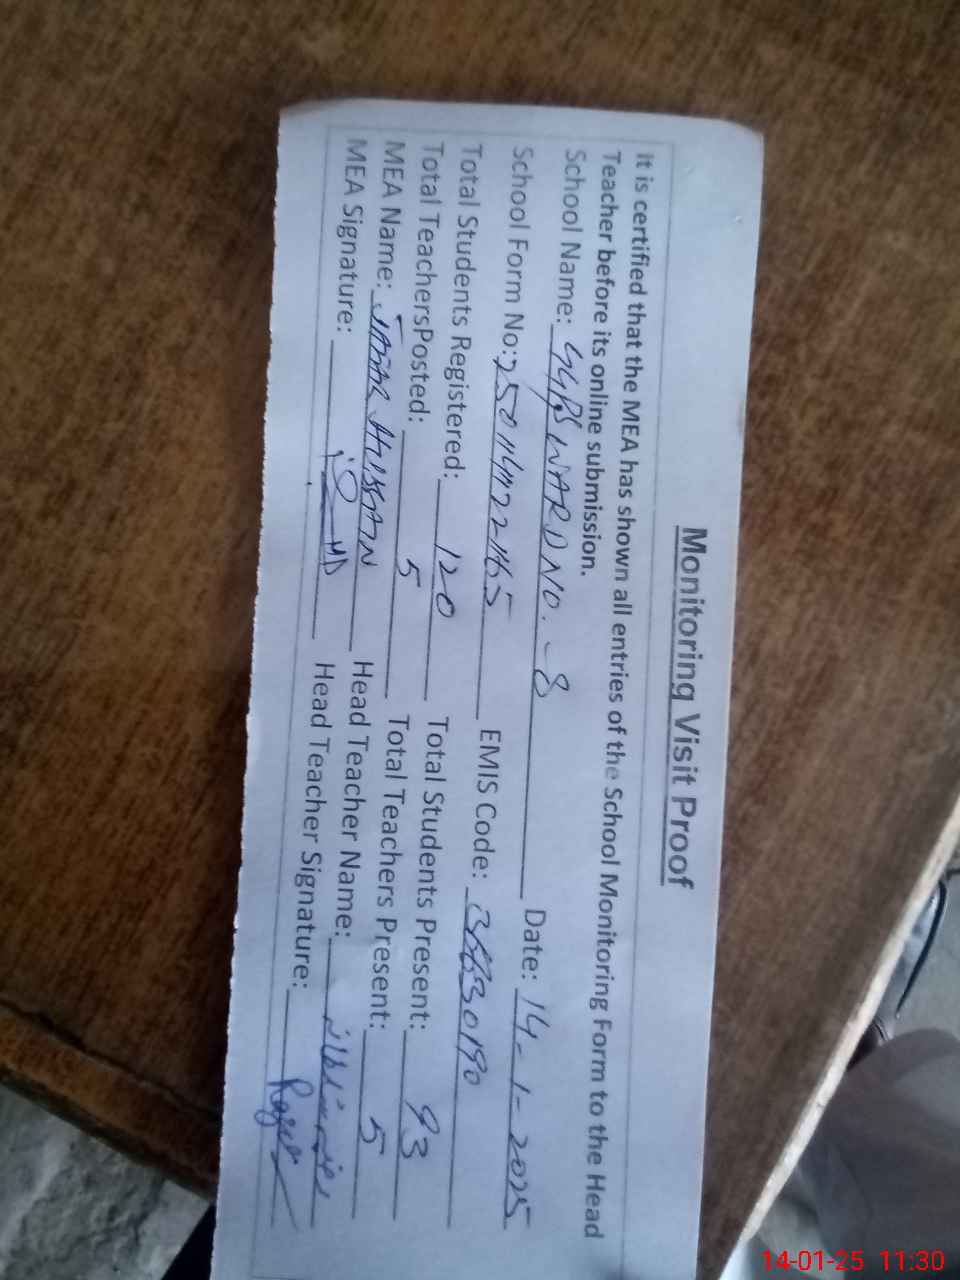 Monitoring Visit Proof
It is certified that the MEA has shown all entries of the School Monitoring Form to the Head
Teacher before its online submission.
School Name: WARD NO. - 8 Date: 14-1-2025
School Form No: EMIS Code:
Total Students Registered: 120 Total Students Present: 93
Total TeachersPosted: 5 Total Teachers Present: 5
MEA Name: HUSSAIN Head Teacher Name:
MEA Signature: Head Teacher Signature:
14-01-25 11:30